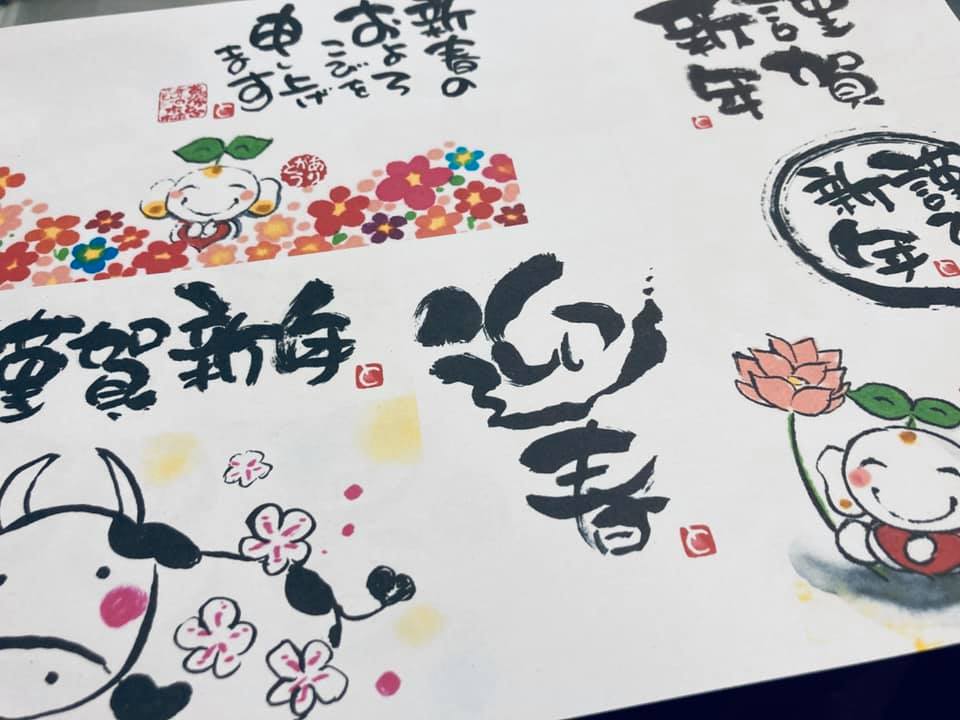 新春の
およろ
こびを
申し上げ
ます
謹賀
新年
あり
がとう
謹賀
新年
謹賀新年
迎春